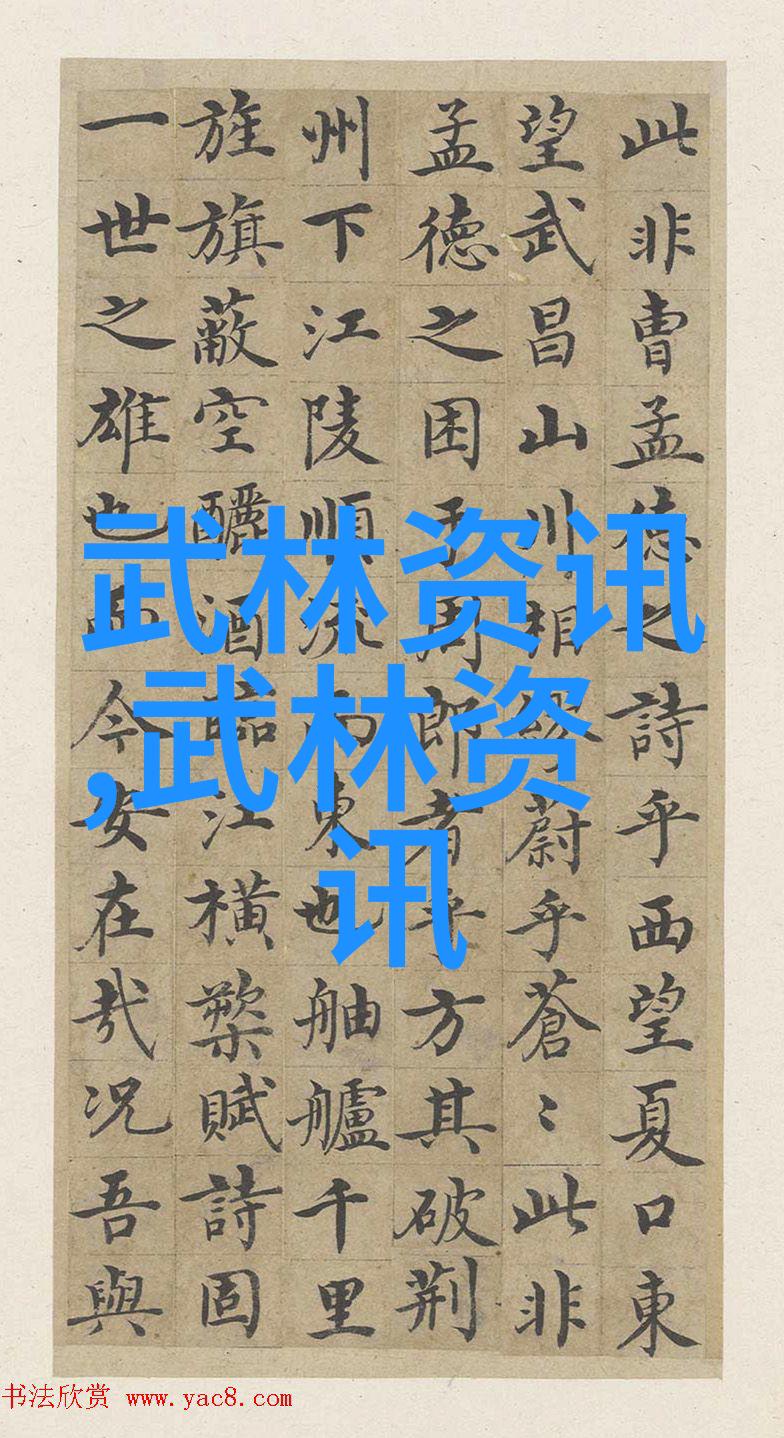 此非曹孟德之詩乎西望夏口東
望武昌山川相繆蔚乎蒼〻此非
孟德之困于周郎者乎方其破荆
州下江陵順流而東也舳艫千里
旌旗蔽空釃酒臨江横槊賦詩固
一世之雄也而今安在哉况吾與
武林资讯
,武林资
讯
书法欣赏 www.yac8.com